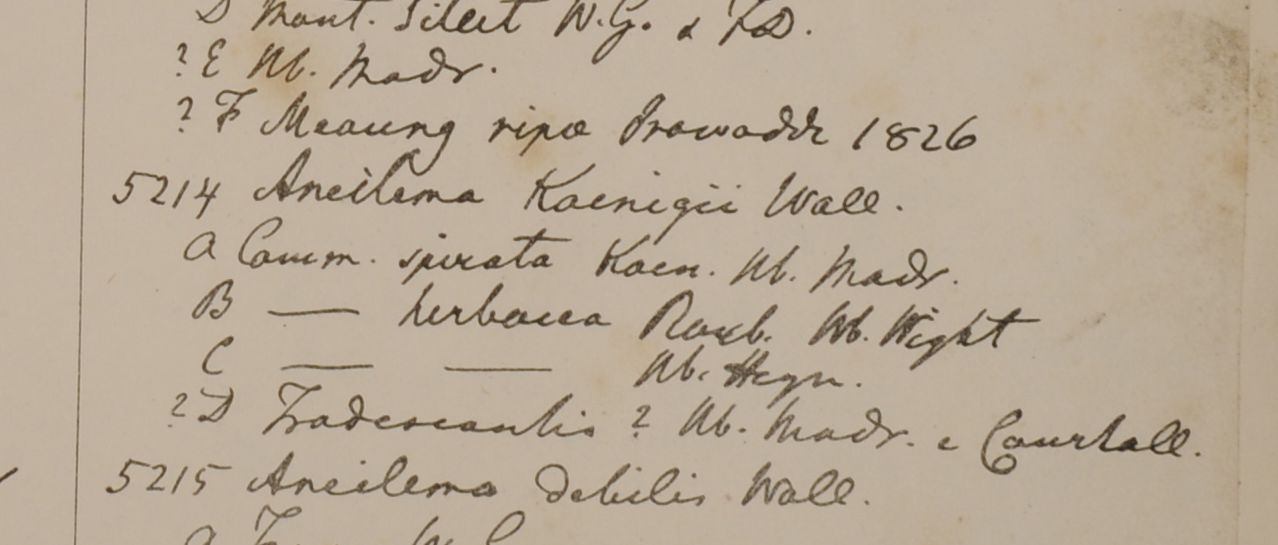 D Mont. Sillet W.G. & F.D.
? E Hb. Madr.
? F Meaung ripa Prowaddi 1826
5214 Aneilema Koenigii Wall.
a Comm. spirata Koen. Hb. Madr.
B — herbacea Roxb. Hb. Wight
C — — Hb. Heyn.
? D Tradescantia ? Hb. Madr. e Courtall.
5215 Aneilema debilis Wall.